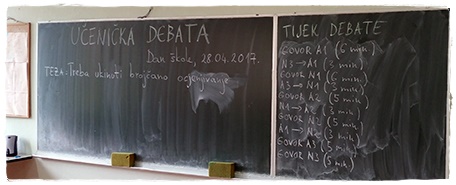 UČENIČKA DEBATA
Dan škole, 28.04.2017.
TEZA: Treba ukinuti brojčano ocjenjivanje
TIJEK DEBATE
GOVOR A1 (6 min.)
N3 → A1 (3 min.)
GOVOR N1 (6 min.)
A3 → N1 (3 min.)
GOVOR A2 (5 min.)
N1 → A2 (3 min.)
GOVOR N2 (5 min.)
A1 → N2 (3 min.)
GOVOR A3 (5 min.)
GOVOR N3 (5 min.)